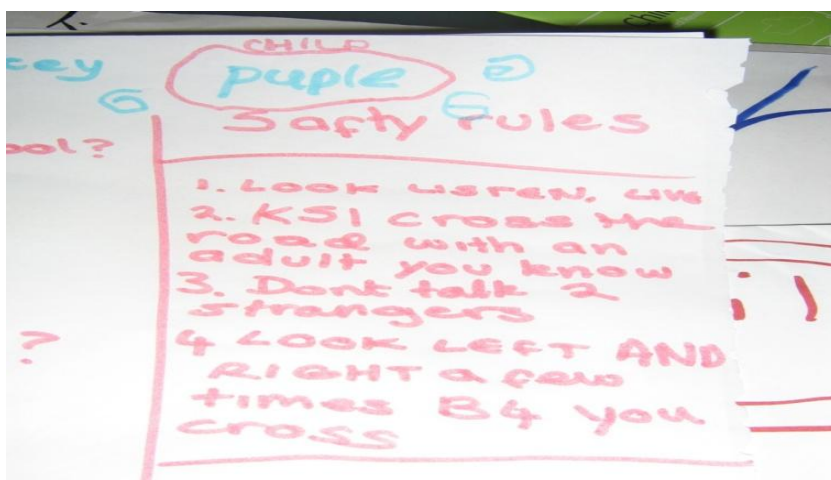 CHILD
puple
Safty rules
1. LOOK LISTEN, LIVE
2. KS1 cross the
road with an
adult you know
3. Dont talk 2
strangers
4 LOOK LEFT AND
RIGHT a few
times B4 you
cross
cey
ool?
?